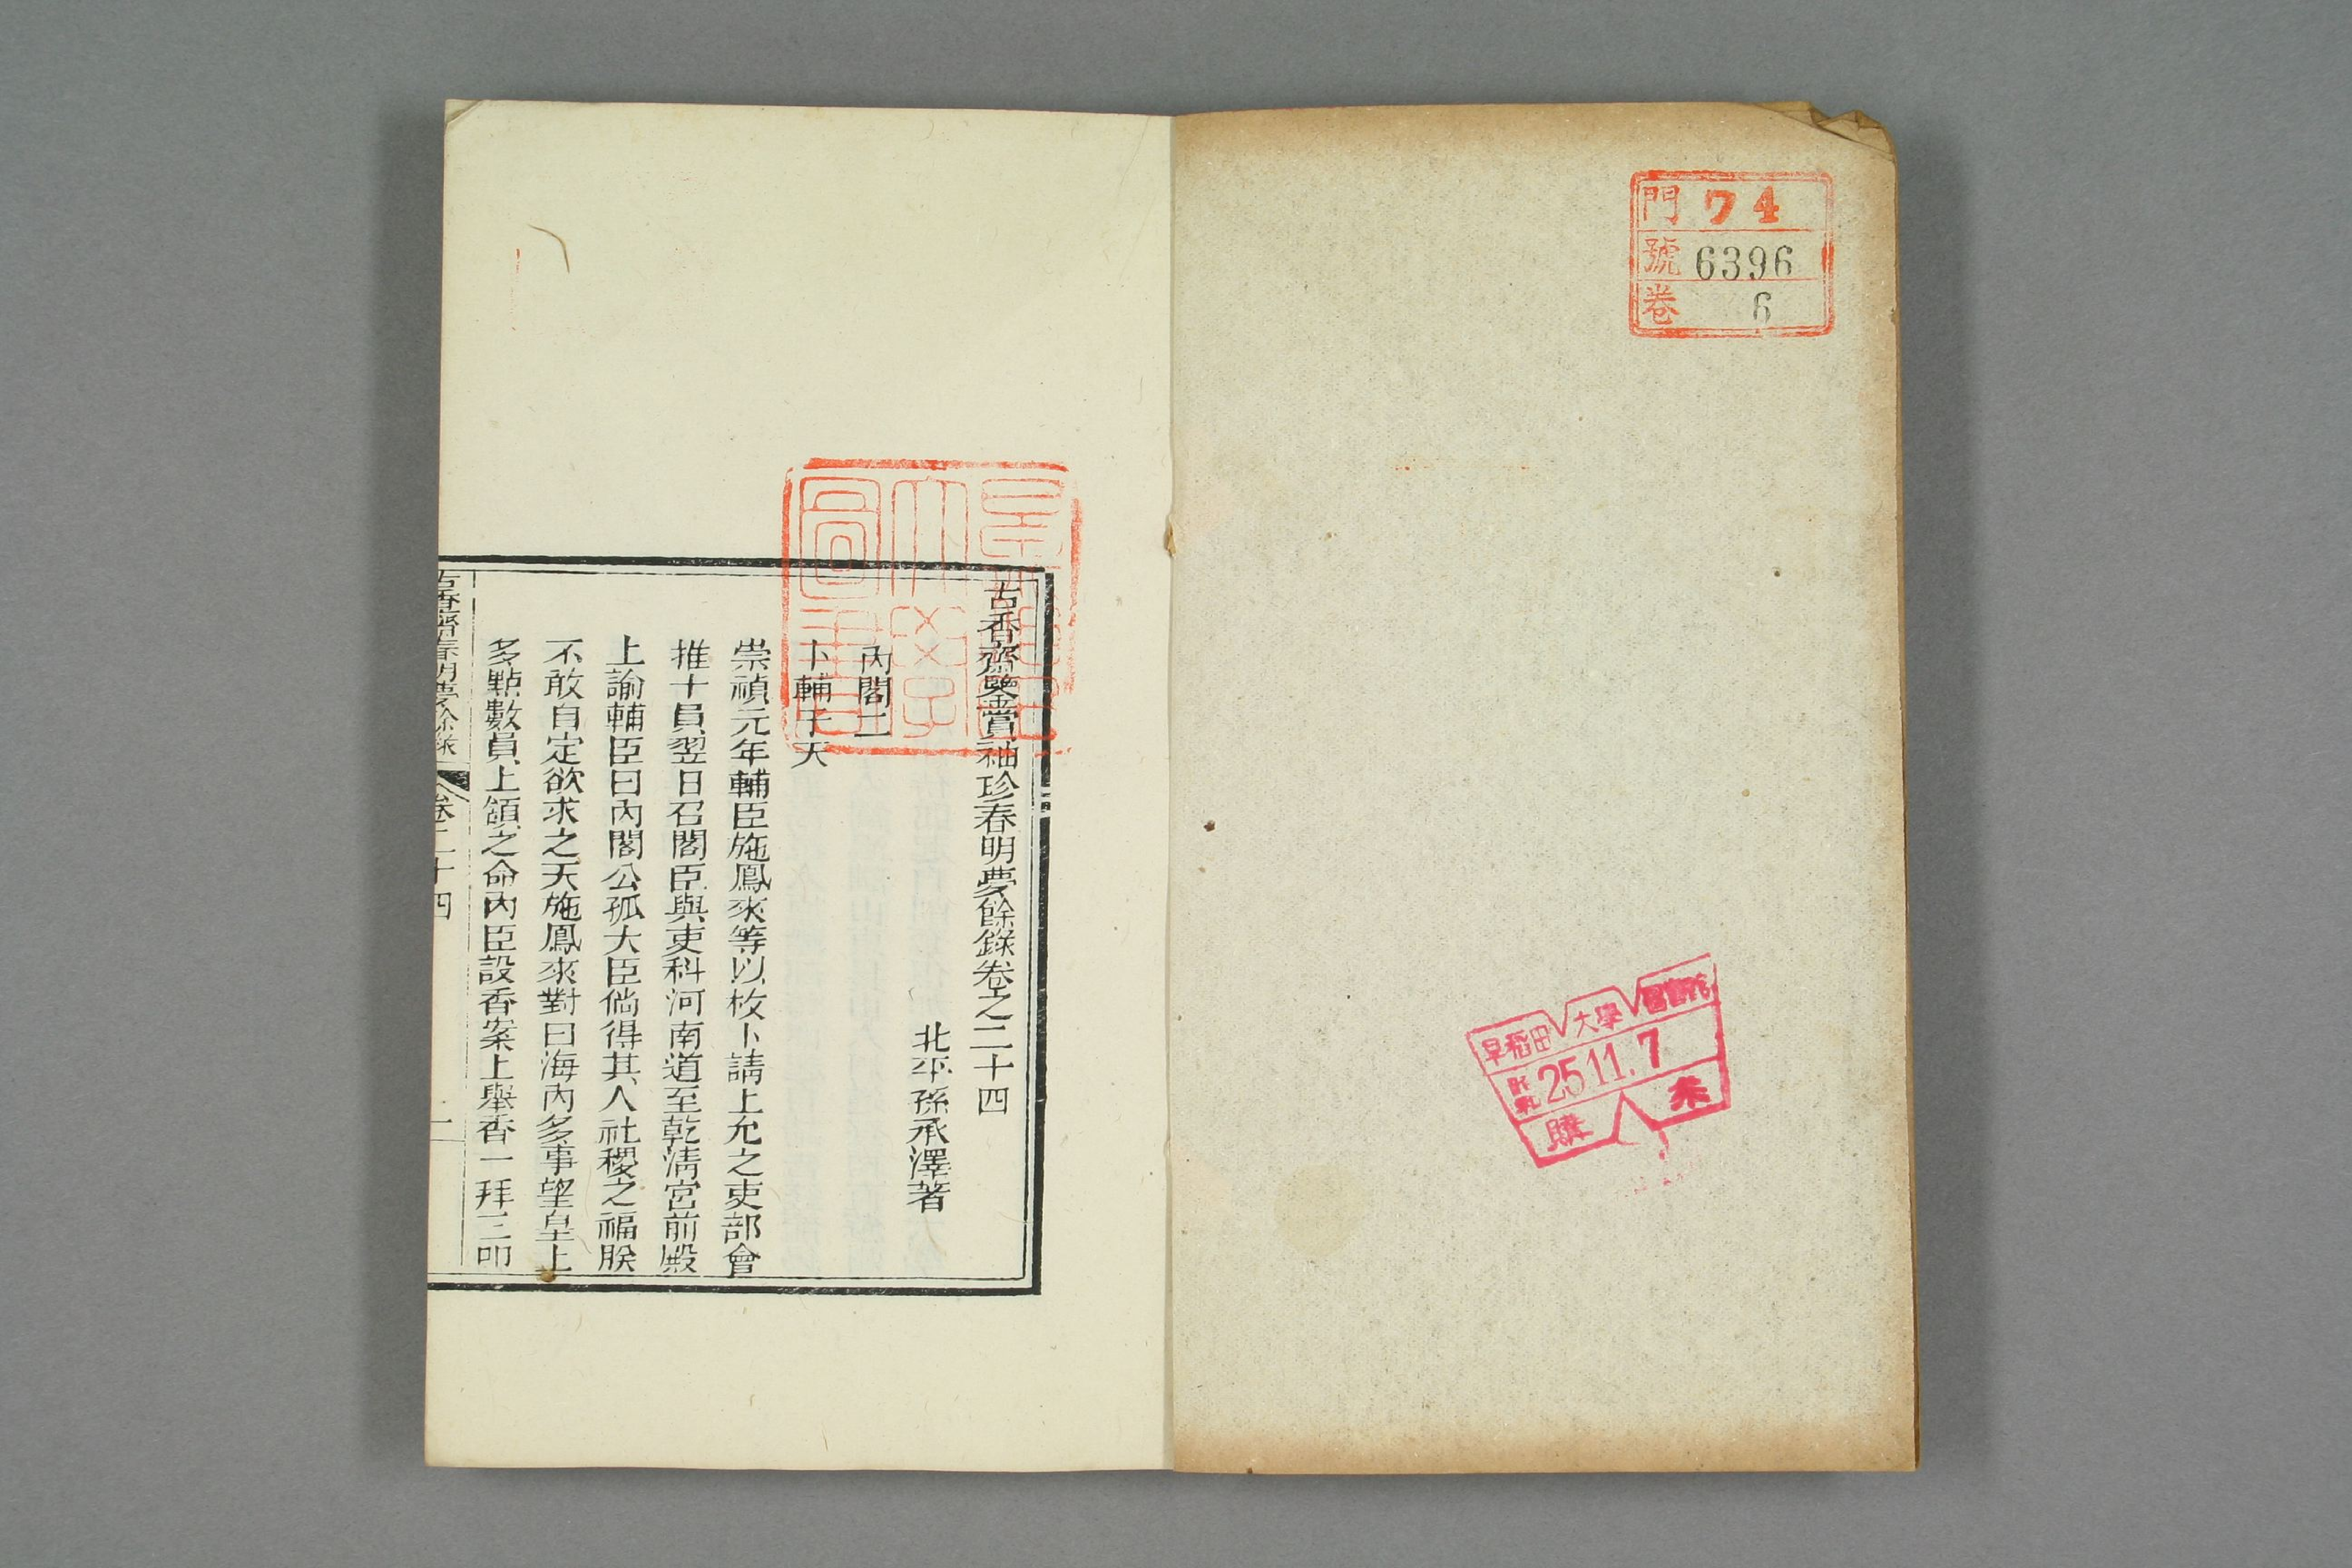 門 74
號 6396
卷 6
早稻田大學圖書
25.11.7
購 求
古香齋鑒賞袖珍春明夢餘錄卷之二十四
北平孫承澤著
內閣二
卜輔于天
崇禎元年輔臣施鳳來等以枚卜請上允之吏部會
推十員翌日召閣臣與吏科河南道至乾清宮前殿
上諭輔臣曰內閣公孤大臣倘得其人社稷之福朕
不敢自定欲求之天施鳳來對曰海內多事望皇上
多點數員上頷之命內臣設香案上舉香一拜三叩
古香齋春明夢餘錄 卷二十四 一